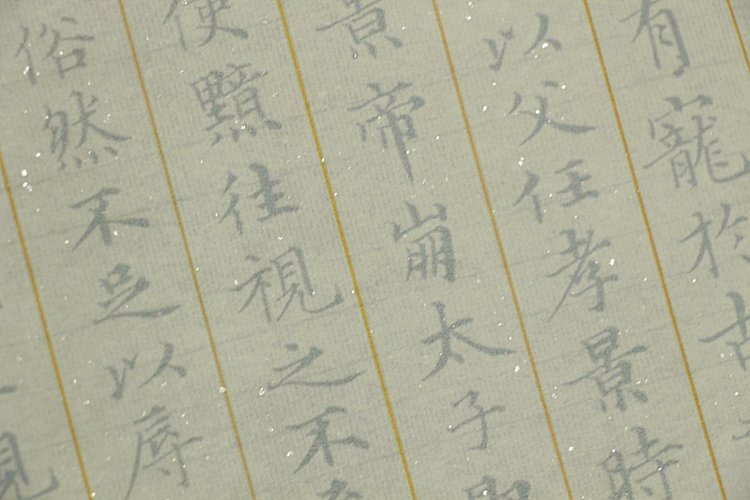 有寵於古
以父任孝景時
景帝崩太子即
使黯往視之不
俗然不足以辱
見